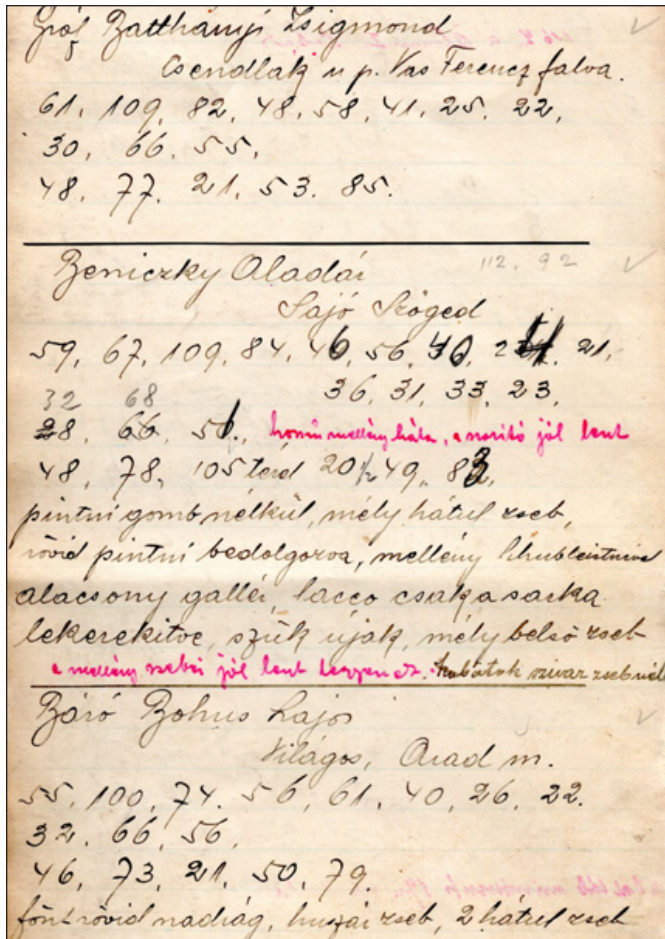 Gróf Batthányi Zsigmond
Csendlak u. p. Vas Ferencz falva.
61, 109, 82, 48, 58, 41, 25, 22,
30, 66, 55,
48, 77, 21, 53, 85.
Beniczky Aladár 112, 92
Sajó Szöged
59, 67, 109, 84, 46, 56, 21,
32 68 36, 31, 33, 23,
28, 66, 
48, 78, 105 térd 20½ 49, 83,
pintni gomb nélkül, mély hátul zseb,
rövid pintni bedolgozva, mellény
alacsony gallér, lacco csak a sarka
lekerekitve, szük ujak, mély belső zseb
a mellény zsebei jól lent legyenek. kabátok szivar zseb nél
Báró Bohus Lajos
Világos, Arad m.
55, 100, 74, 56, 61, 40, 26, 22.
32, 66, 56,
46, 73, 21, 50, 79.
fönt rövid nadrág, huszár zseb, 2 hátul zseb